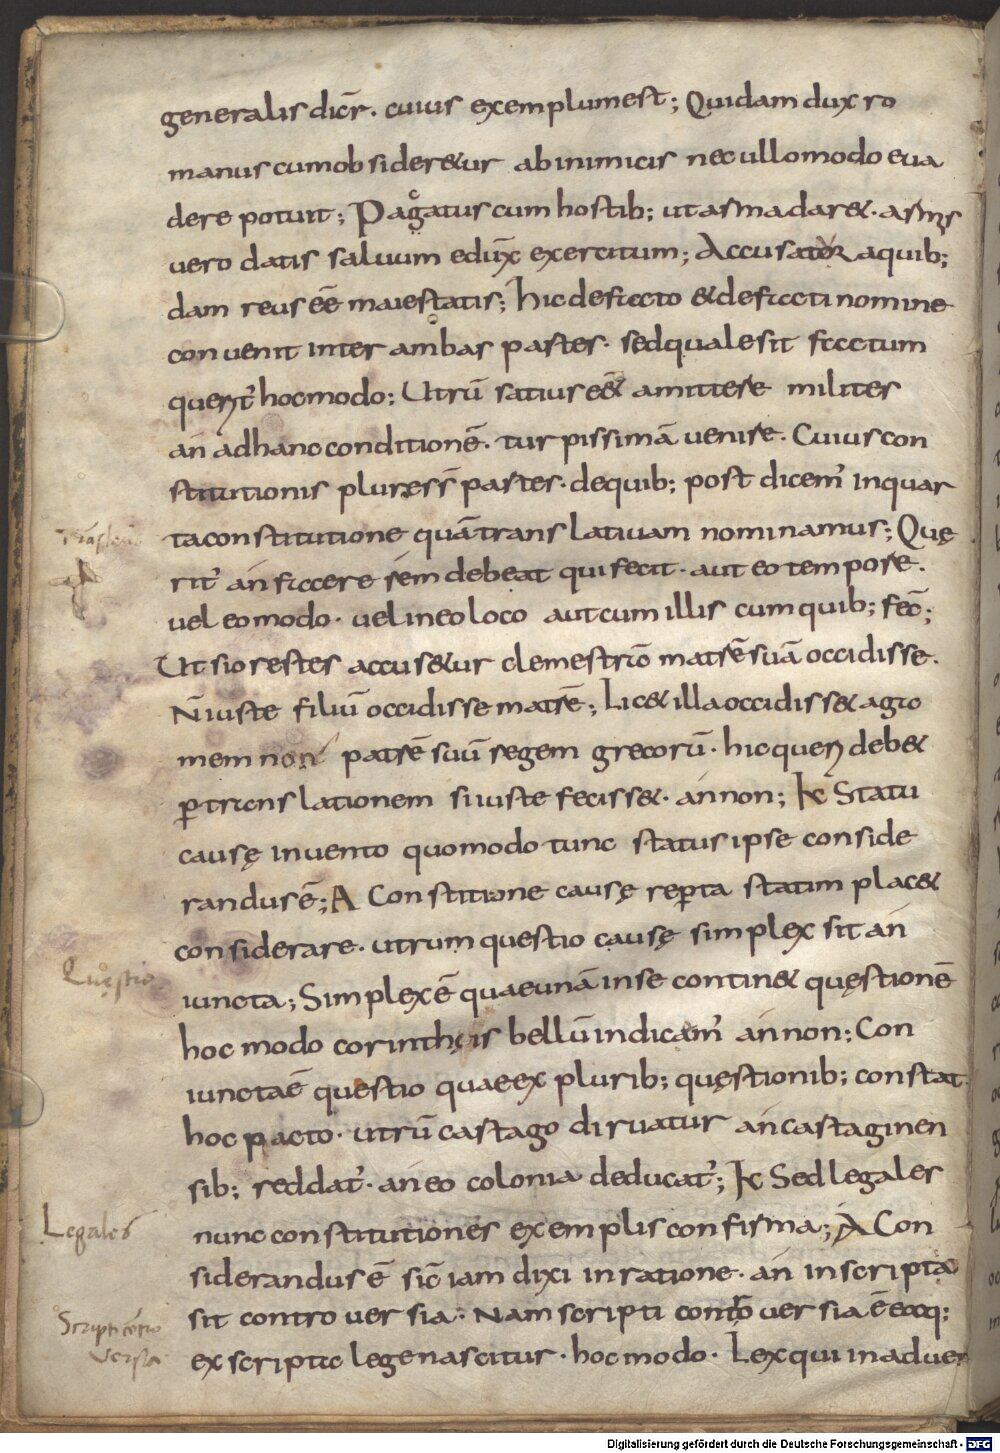 generalis dicr̄. cuius exemplum est; Quidam dux ro
manus cum obsider&ur ab inimicis nec ullo modo eua
dere potuit; Pagatus cum hostib; ut arma dar&. armis
uero datis saluum edux̄ exercitum; Accusator aquib;
dam reus eē maiestatis; hic de facto & de facti nomine
conuenit inter ambas partes. sed quale sit factum
querit̉ hoc modo; Utrū satius eē& amittere milites
an ad hanc conditionē. turpissimā uenire. Cuius con
stitutionis plures s̄ partes. de quib; post dicem̉ in quar
ta constitutione quā translatiuam nominamus; Quę
rit̉ an facere sem debeat qui fecit. aut eo tempore.
uel eo modo. uel in eo loco aut cum illis cum quib; fec̄;
Ut si orestes accus&ur clemestrā matrē suā occidisse.
N̄ iuste filiū occidisse matrē; Lic& illa occidiss& aga
mem non patrē suū regem grecorū. hic queri deb&
ꝑ translationem si iuste feciss&. an non; K Statu
causę inuento quomodo tunc status ipse conside
randus ē; A Constitione causę reꝑta statim plac&
considerare. utrum questio causę simplex sit an
iuncta; Simplex ē quae unā in se contin& quęstionē
hoc modo corinthęis bellū indicam̉ an non; Con
iuncta ē questio quae ex plurib; quęstionib; constat
hoc pacto. utrū cartago diruatur an cartaginen
sib; reddat̉. an eo colonia deducat̉; K Sed legales
nunc constitutiones exemplis confirma; A Con
siderandus ē sic̄ iam dixi in ratione. an in scripta
sit controuersia. Nam scripti controuersia ē eaq;
ex scripta lege nascitur. hoc modo. Lex qui in aduer
Quęstio
Legales
Scripti cōtro
versia